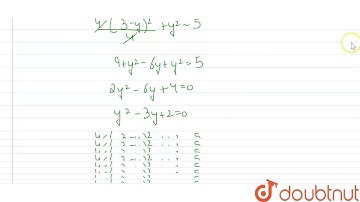 4(3-y)²/4 + y² = 5
9+y²-6y+y²=5
2y²-6y+4=0
y²-3y+2=0
doubtnut